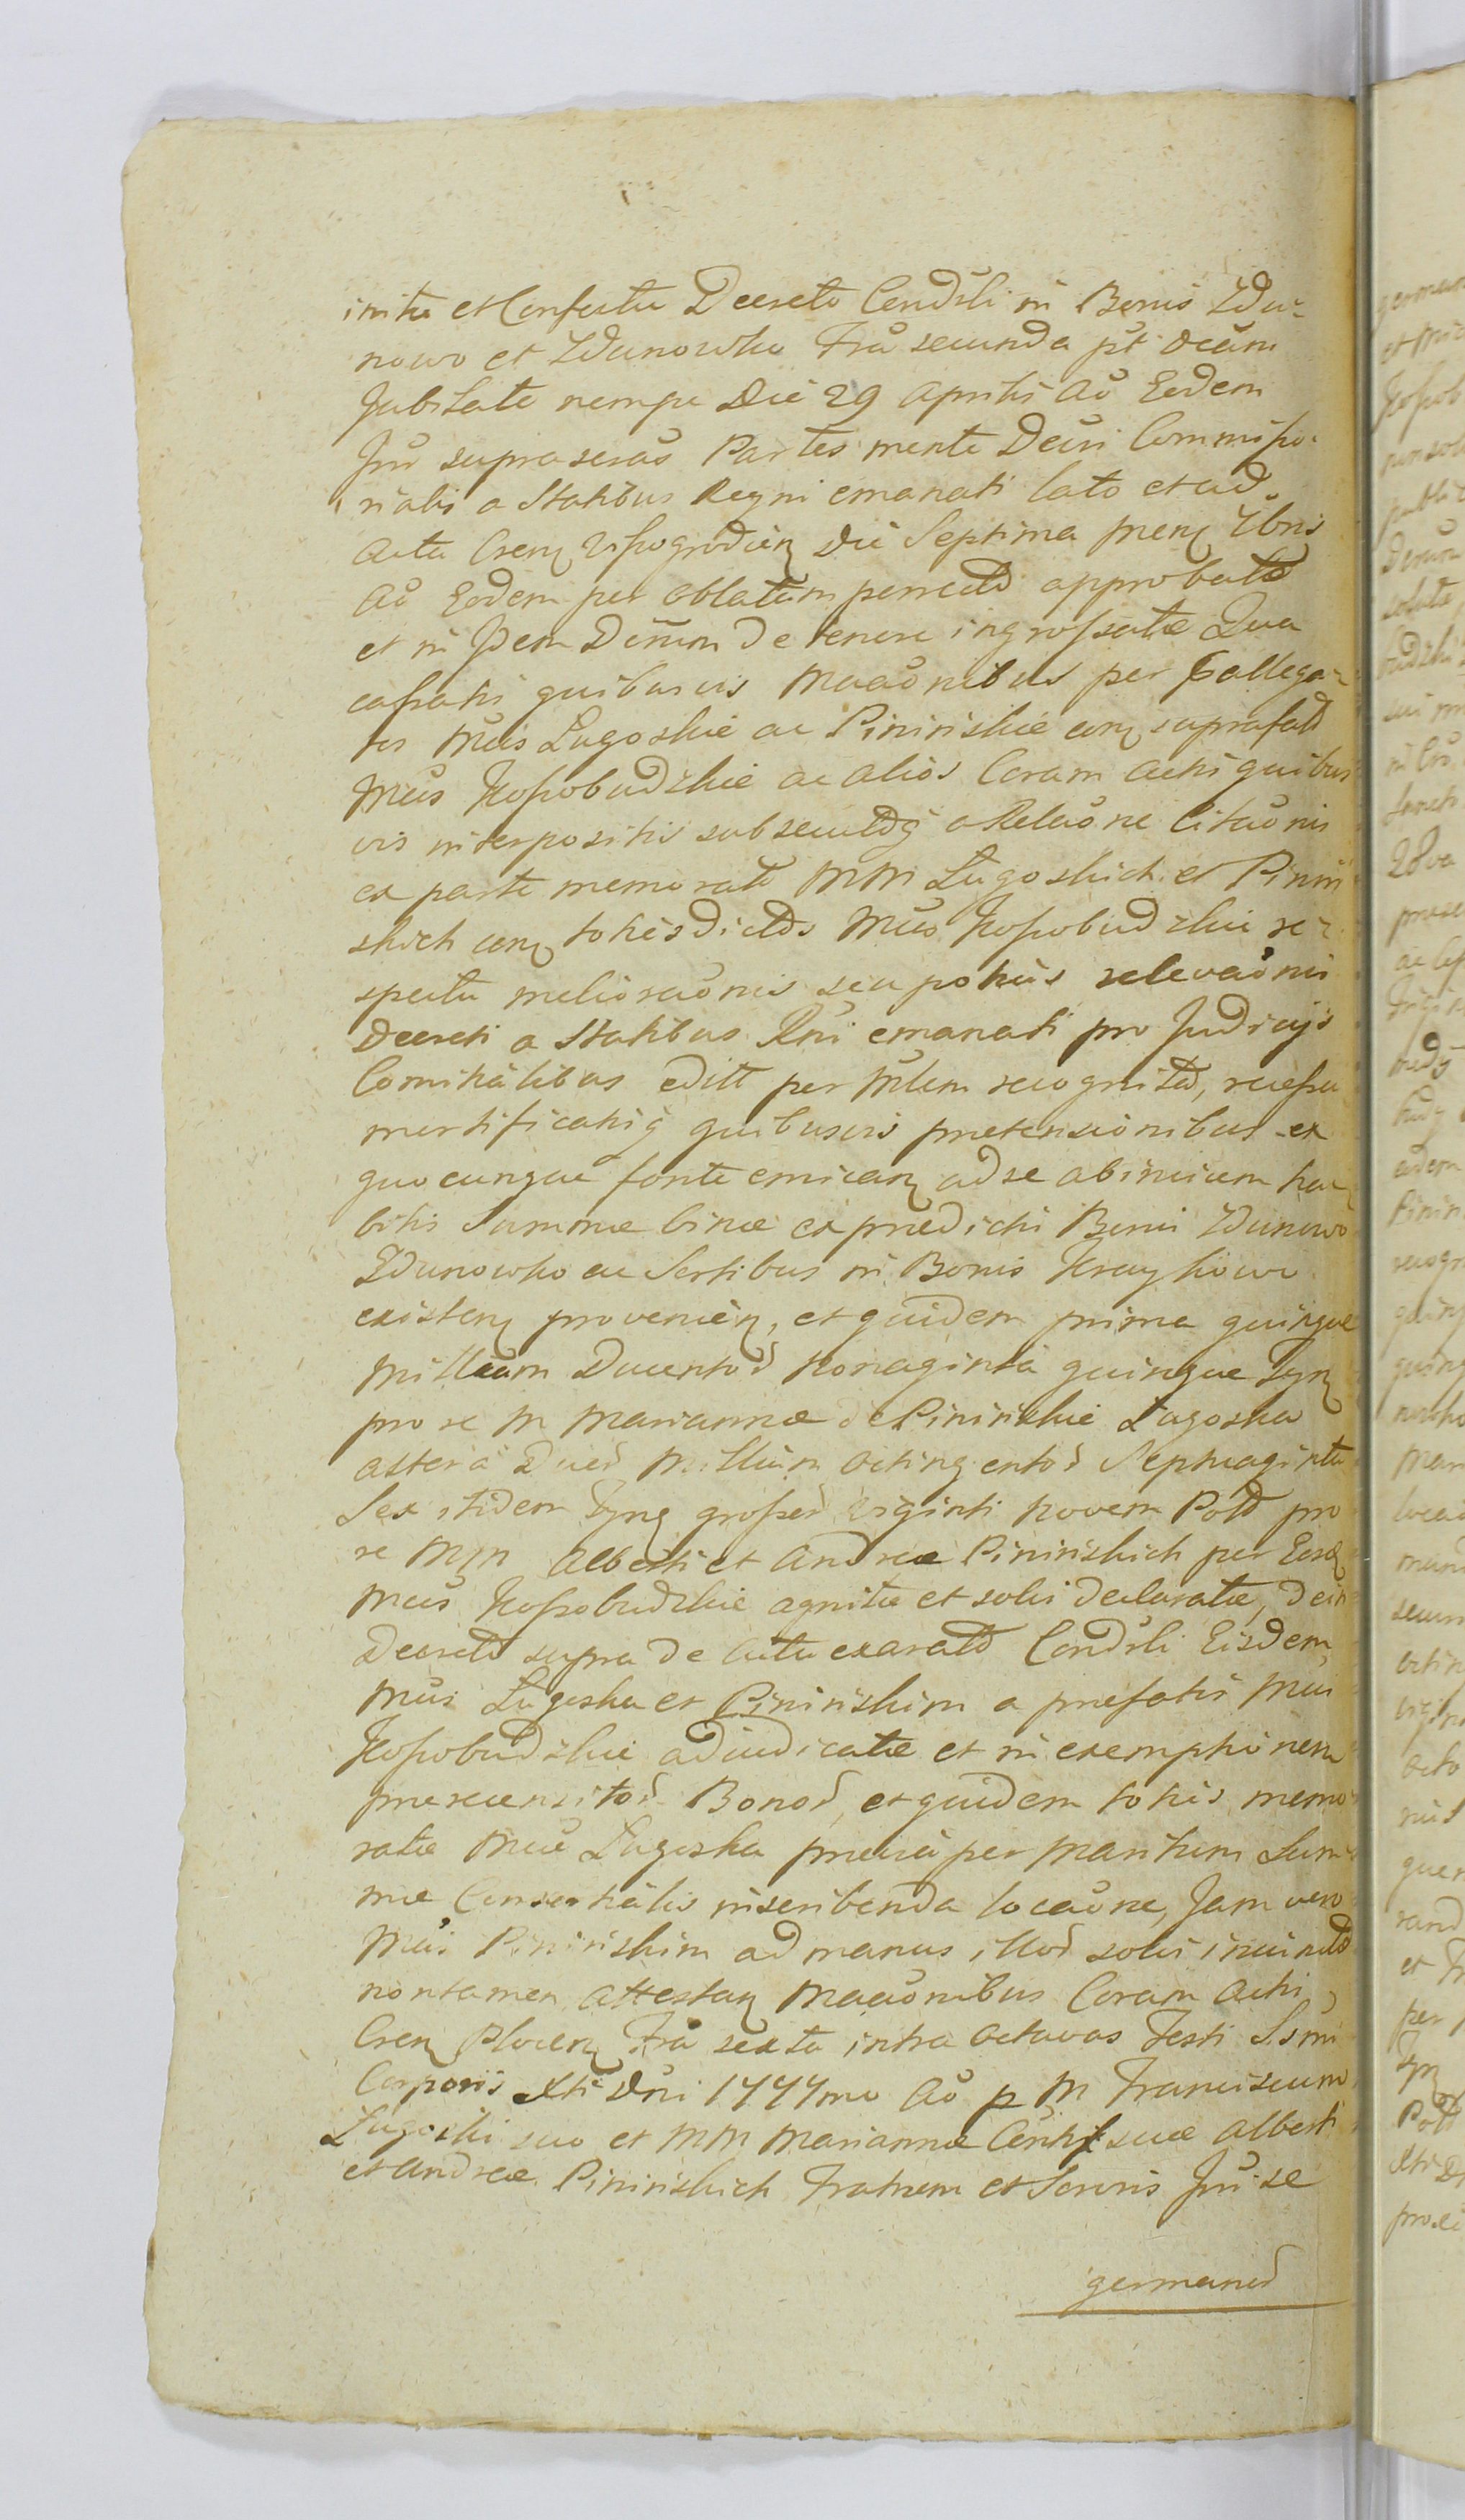 inita et Confecta Decreto Condsli in Bonis Zdu-
nowo et Zdunowko Fra secunda pt Dcam
Jubilate nempe Die 29 Aprilis Ao Eodem
Jnr suprascras Partes mente Decri Commisso-
rialis a Statibus Regni emanati lato et ad
Acta Cren Wyszogrodien Die Septima Mens Xbris
Ao Eodem per Oblatam porrecto approbato
et in Jdem Dcrum de tenore ingrossatæ Qua
cassatis quibusvis Maaonibus per
tes Mcis Lugoskie ac Pininskie cum suprafat
Mcus Kossobudzkie ac alios Coram Actis quibus
vis interpositis subsecutq a Relaone Citaonis
ex parte memorat MM Lugoskich et Pinin
skich con toties dictos Mcos Kossobudzkie re-
spectu melioraonis seu potius relevaonis
Decreti a Statibus Rni emanati pro Judicijs
Comitialibus editt per Mlem recognita,
mortificatisq quibusvis pretensionibus ex
quocunque fonte emican ad se ab invicem ha-
bitis Summæ binæ ex prædictis Bonis Zdunowo
Zdunowko ac Sortibus in Bonis
existen provenien, et quidem prima quinque
Millium Ducentor Nonaginta quinque Tyn
pro re M Mariannæ de Pininskie Lugoska
altera Duor Millium Octingentor Septuaginta
Sex itidem Tyn grosser viginti novem Poll pro
re MM Alberti et Andreæ Pininskich per Eosd
Mcus Kossobudzkie agnitæ et solvi declaratæ, dein
Decreto supra de Actu exarato Condsli Eisdem
Mcis Lugoska et Pininskim a prefatis Mcis
Kossobudzkie adiudicatæ et in exemptionem
prerecensitor Bonor, et quidem totis memo
ratæ Mcæ Lugoska prævia per Maritum Sum-
mæ Consortialis inscribenda locaone, Jam vero
Mcis Pininskim ad manus illor solvi
non tamen attestan Maaonibus Coram Actis
Cren Plocen Fra sexta intra Octavas Festi SSmi
Corporis Xti Dni 1777mo Ao p M Franciscum
Lugoski suo et MM Mariannæ suæ Alberti
et Andreæ Pininskich Fratrem et Sororis Jnr se
germanor